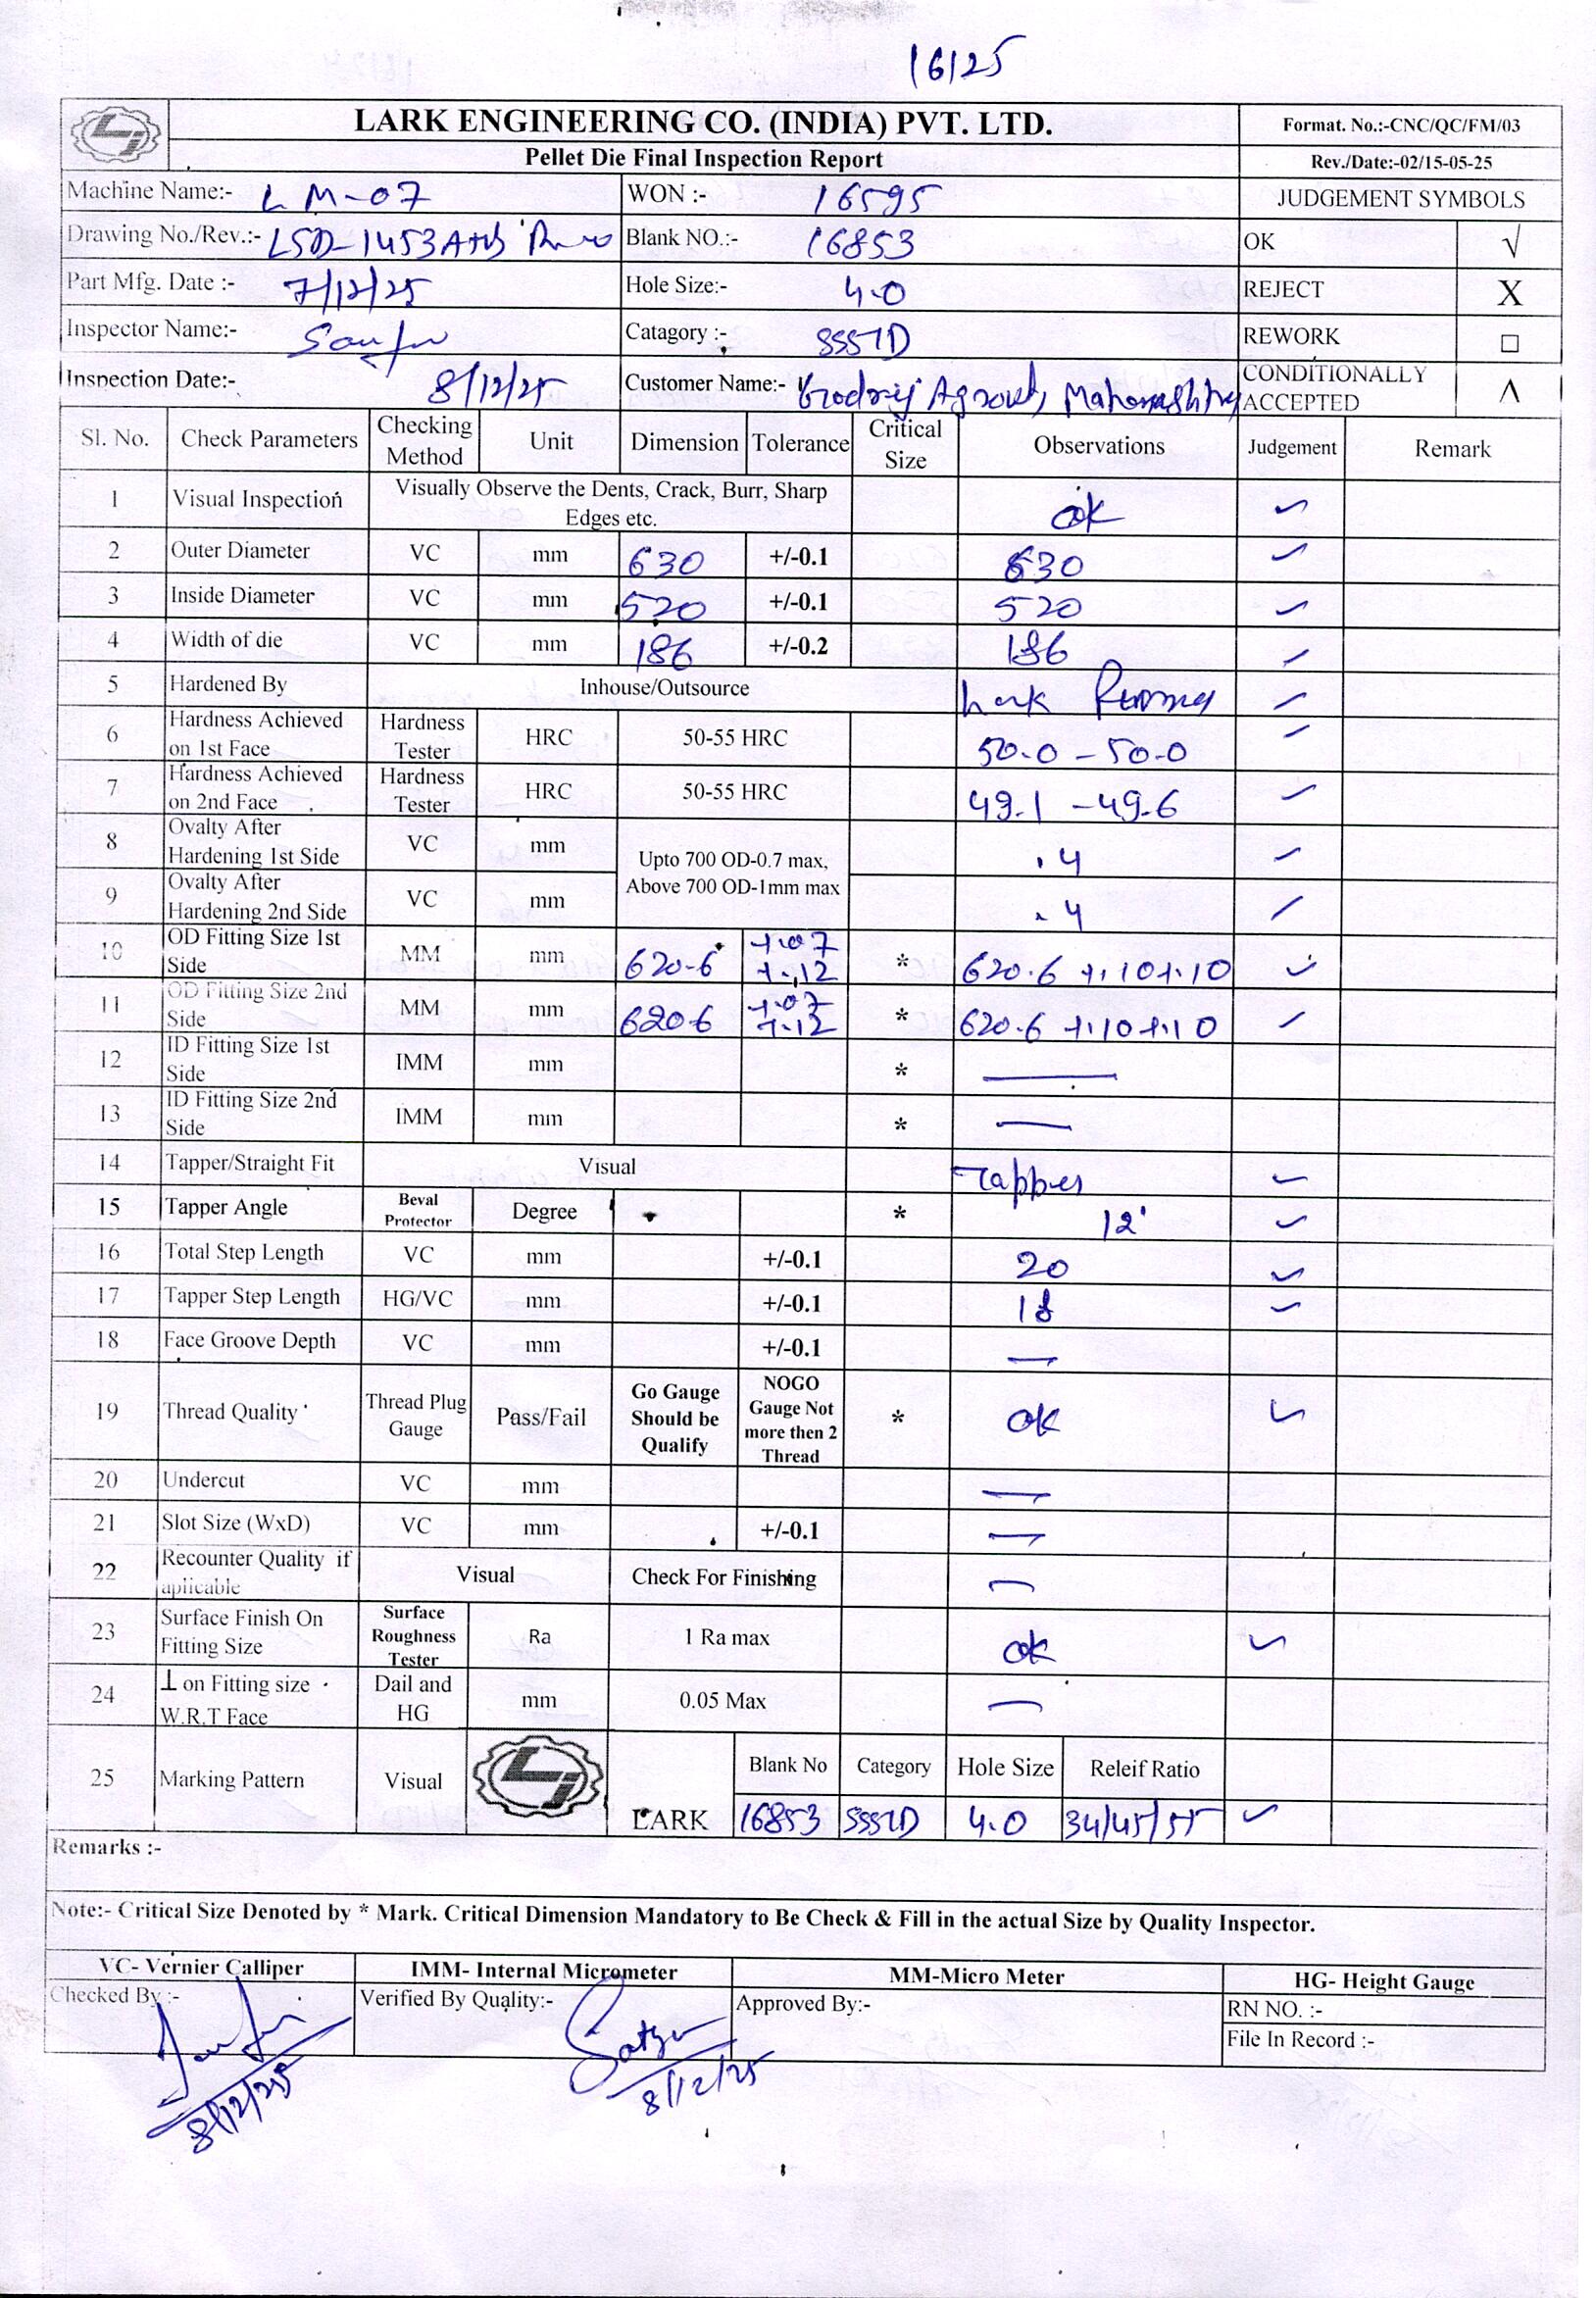 16125
LARK ENGINEERING CO. (INDIA) PVT. LTD.
Format. No.:-CNC/QC/FM/03
Pellet Die Final Inspection Report
Rev./Date:-02/15-05-25
Machine Name:- LM-07 WON :- 16595 JUDGEMENT SYMBOLS
Drawing No./Rev.:- LSD-1453A+B Blank NO.:- 16853 OK √
Part Mfg. Date :- 7/12/25 Hole Size:- 4.0 REJECT X
Inspector Name:- Catagory :- SSSTD REWORK □
Inspection Date:- 8/12/25 Customer Name:- Godrej Agrovet, Maharashtra CONDITIONALLY ACCEPTED Λ
Sl. No. Check Parameters Checking Method Unit Dimension Tolerance Critical Size Observations Judgement Remark
1 Visual Inspection Visually Observe the Dents, Crack, Burr, Sharp Edges etc. ok ✓
2 Outer Diameter VC mm 630 +/-0.1 630 ✓
3 Inside Diameter VC mm 520 +/-0.1 520 ✓
4 Width of die VC mm 186 +/-0.2 186 ✓
5 Hardened By Inhouse/Outsource Lark ✓
6 Hardness Achieved on 1st Face Hardness Tester HRC 50-55 HRC 50.0 - 50.0 ✓
7 Hardness Achieved on 2nd Face Hardness Tester HRC 50-55 HRC 49.1 - 49.6 ✓
8 Ovalty After Hardening 1st Side VC mm Upto 700 OD-0.7 max, Above 700 OD-1mm max .4 ✓
9 Ovalty After Hardening 2nd Side VC mm .4 ✓
10 OD Fitting Size 1st Side MM mm 620.6 +.07 +.12 * 620.6 +.10 +.10 ✓
11 OD Fitting Size 2nd Side MM mm 620.6 +.07 +.12 * 620.6 +.10 +.10 ✓
12 ID Fitting Size 1st Side IMM mm * —
13 ID Fitting Size 2nd Side IMM mm * —
14 Tapper/Straight Fit Visual Tapper ✓
15 Tapper Angle Beval Protector Degree * 12' ✓
16 Total Step Length VC mm +/-0.1 20 ✓
17 Tapper Step Length HG/VC mm +/-0.1 18 ✓
18 Face Groove Depth VC mm +/-0.1 —
19 Thread Quality Thread Plug Gauge Pass/Fail Go Gauge Should be Qualify NOGO Gauge Not more then 2 Thread * ok ✓
20 Undercut VC mm —
21 Slot Size (WxD) VC mm +/-0.1 —
22 Recounter Quality if aplicable Visual Check For Finishing —
23 Surface Finish On Fitting Size Surface Roughness Tester Ra 1 Ra max ok ✓
24 ⊥ on Fitting size W.R.T Face Dail and HG mm 0.05 Max —
25 Marking Pattern Visual LARK Blank No Category Hole Size Releif Ratio
16853 SSSTD 4.0 34/45/55 ✓
Remarks :-
Note:- Critical Size Denoted by * Mark. Critical Dimension Mandatory to Be Check & Fill in the actual Size by Quality Inspector.
VC- Vernier Calliper IMM- Internal Micrometer MM-Micro Meter HG- Height Gauge
Checked By :- Verified By Quality:- Approved By:- RN NO. :-
File In Record :-
8/12/25 8/12/25